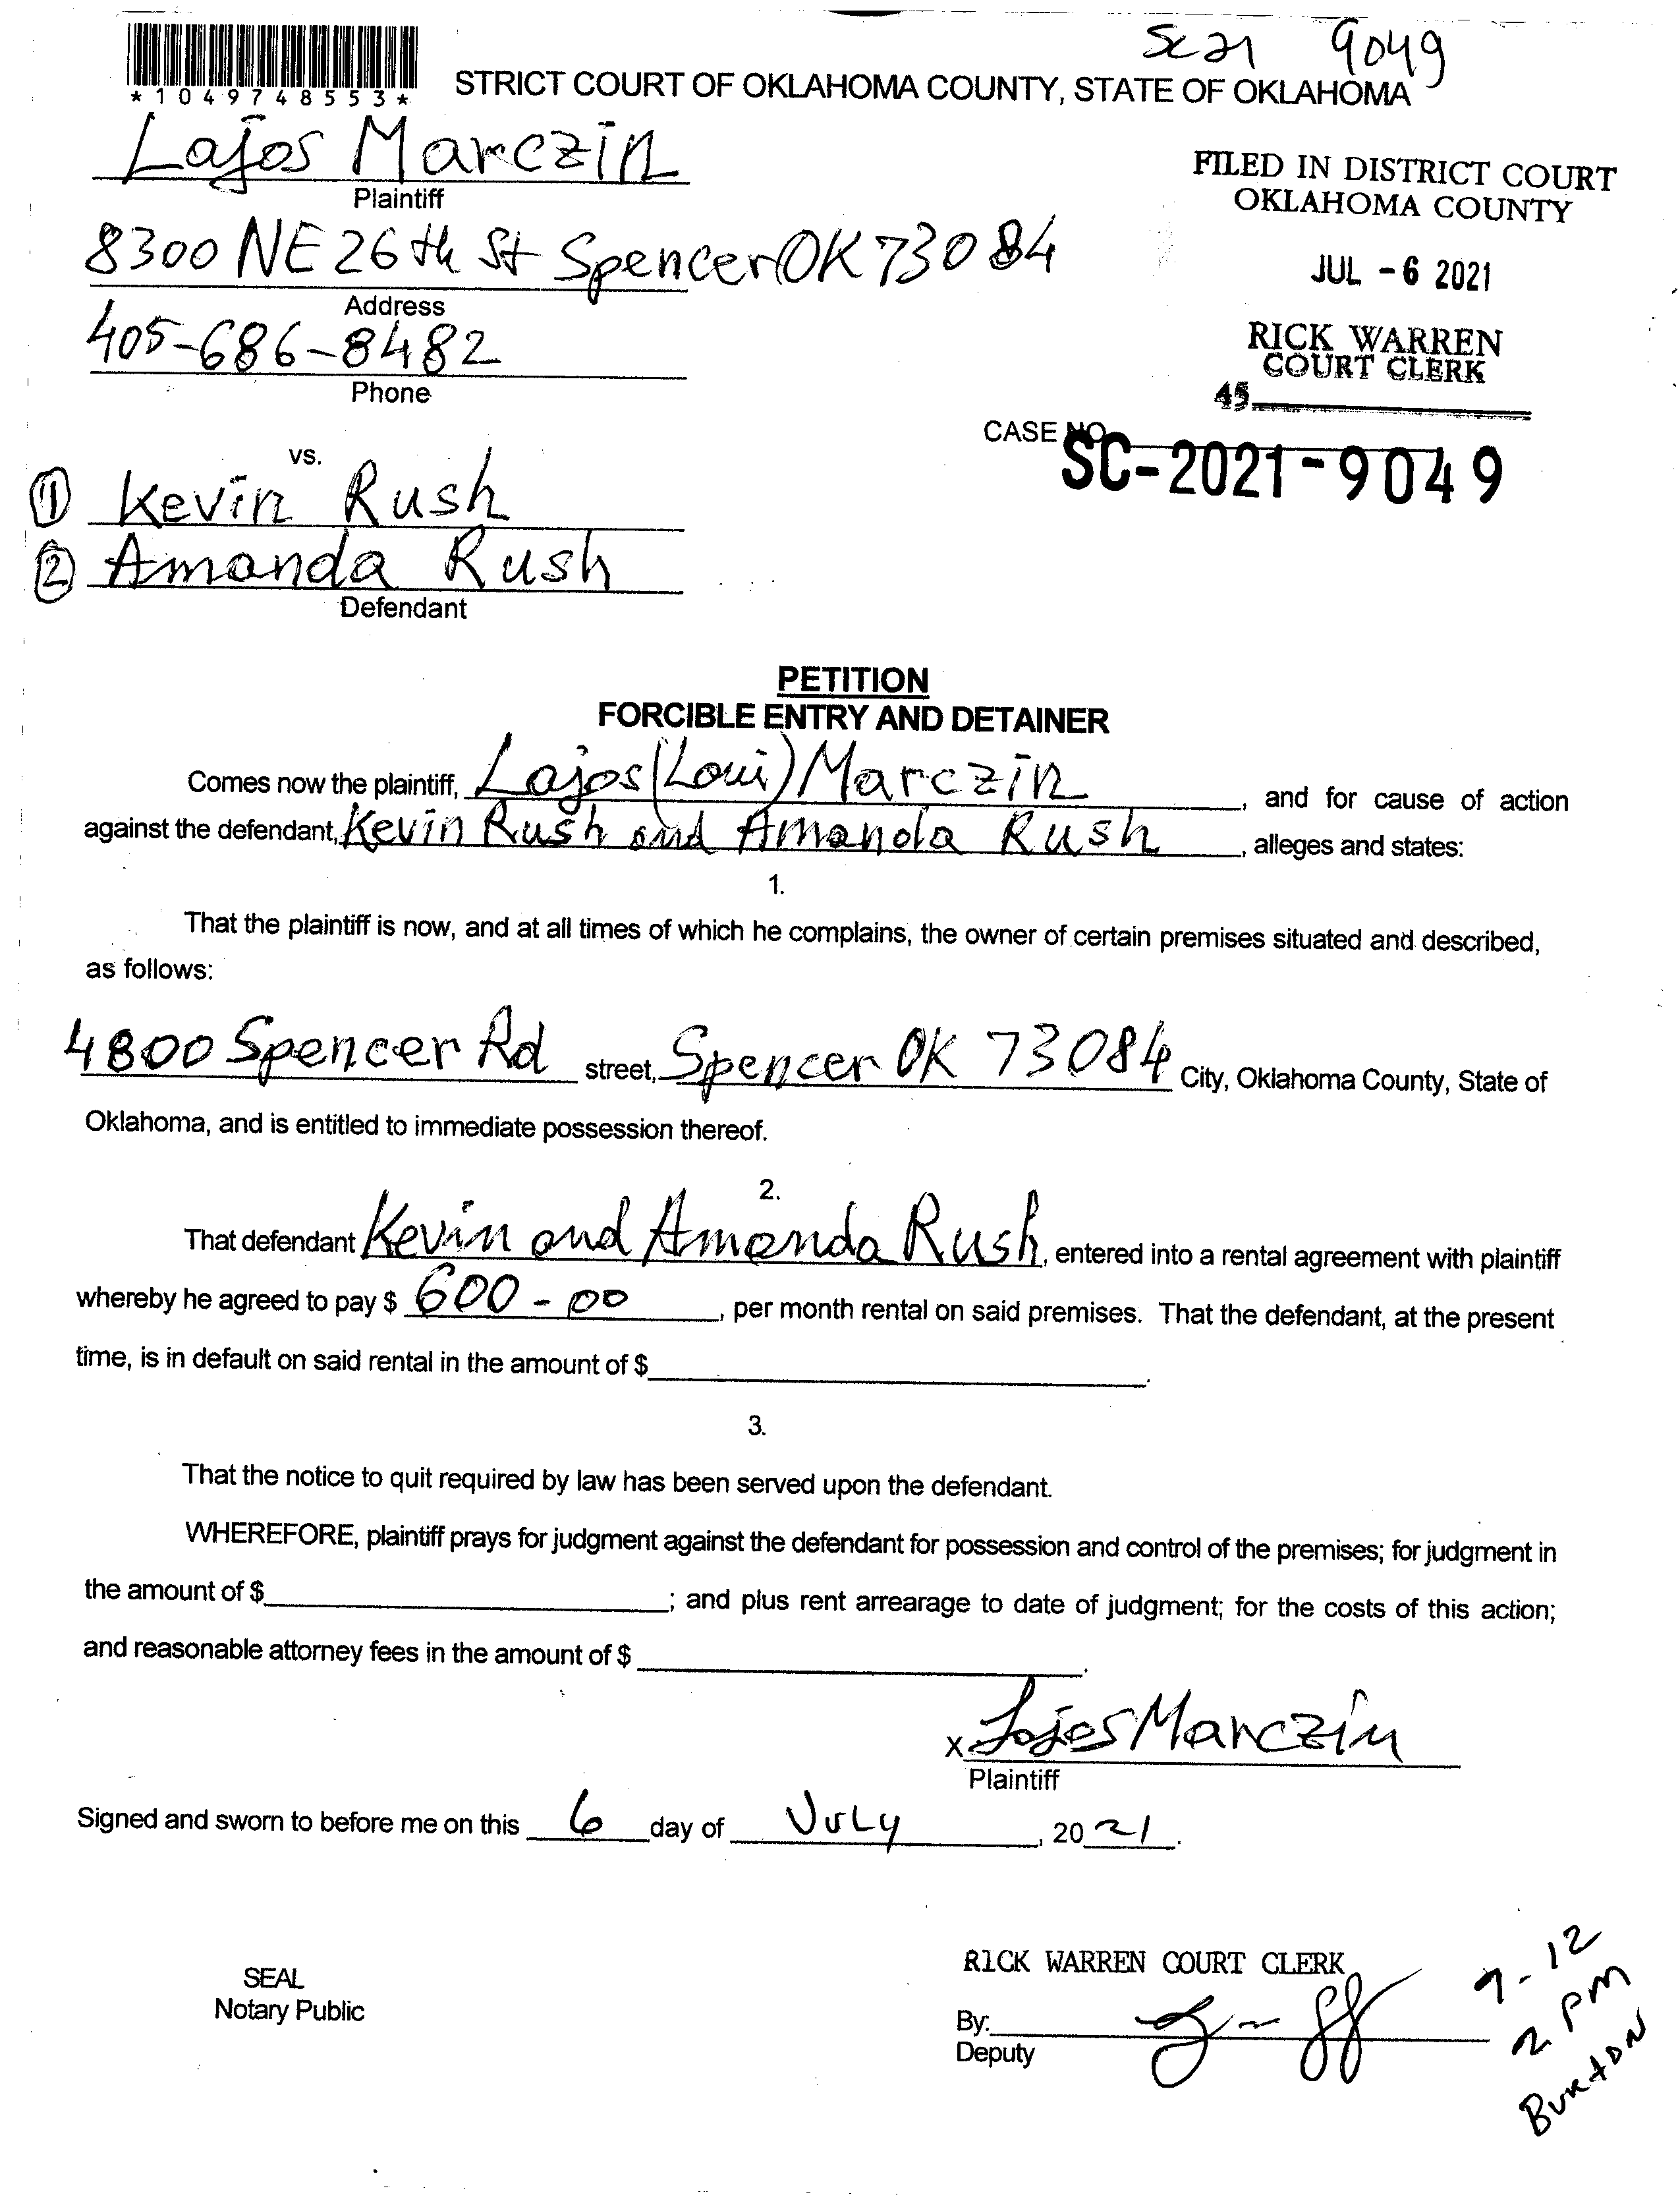 Sc 21 9049
*1049748553*
STRICT COURT OF OKLAHOMA COUNTY, STATE OF OKLAHOMA
Lajos Marczin
Plaintiff
FILED IN DISTRICT COURT
OKLAHOMA COUNTY
8300 NE 26th St Spencer OK 73084
Address
JUL - 6 2021
405-686-8482
Phone
RICK WARREN
COURT CLERK
45
CASE NO.
SC-2021-9049
vs.
1 Kevin Rush
2 Amanda Rush
Defendant
PETITION
FORCIBLE ENTRY AND DETAINER
Comes now the plaintiff, Lajos (Loui) Marczin, and for cause of action
against the defendant, Kevin Rush and Amanda Rush, alleges and states:
1.
That the plaintiff is now, and at all times of which he complains, the owner of certain premises situated and described,
as follows:
4800 Spencer Rd street, Spencer OK 73084 City, Oklahoma County, State of
Oklahoma, and is entitled to immediate possession thereof.
2.
That defendant Kevin and Amanda Rush, entered into a rental agreement with plaintiff
whereby he agreed to pay $ 600-00, per month rental on said premises. That the defendant, at the present
time, is in default on said rental in the amount of $.
3.
That the notice to quit required by law has been served upon the defendant.
WHEREFORE, plaintiff prays for judgment against the defendant for possession and control of the premises; for judgment in
the amount of $; and plus rent arrearage to date of judgment; for the costs of this action;
and reasonable attorney fees in the amount of $.
x Lajos Marczin
Plaintiff
Signed and sworn to before me on this 6 day of July, 2021.
SEAL
Notary Public
RICK WARREN COURT CLERK
By:
Deputy
7-12
2 pm
Burton